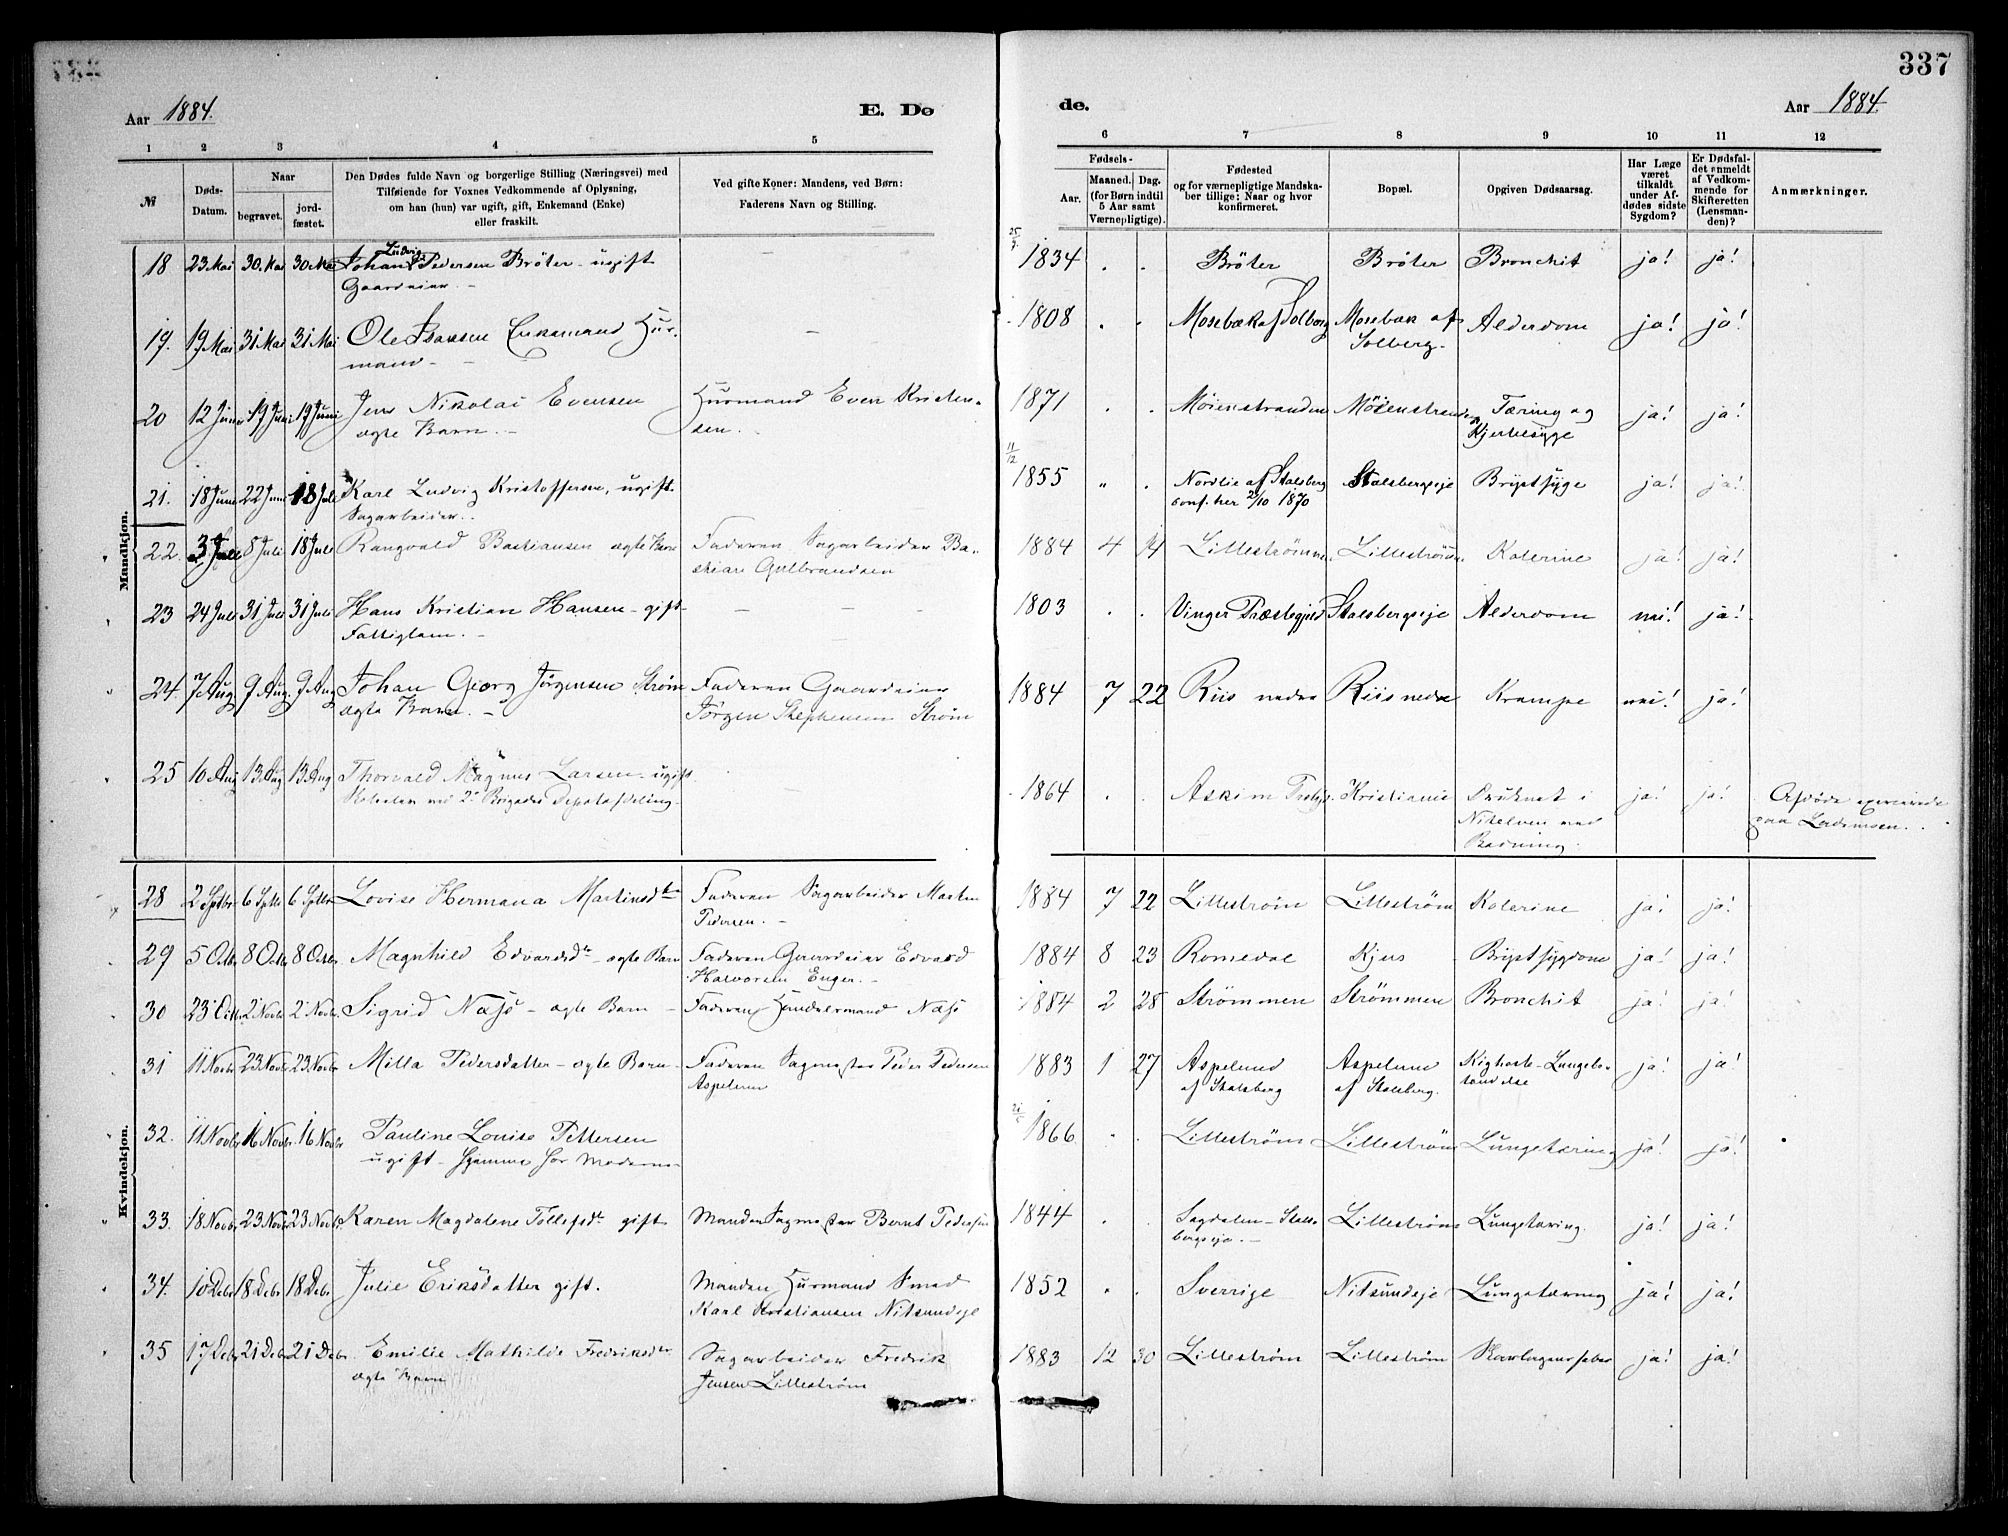 337
Aar 1884.
E. Dø
de.
Aar 1884.
1 2 3 4 5 6 7 8 9 10 11 12
№
Døds-Datum.
Naar
begravet. jordfæstet.
Den Dødes fulde Navn og borgerlige Stilling (Næringsvei) med
Tilføiende for Voxnes Vedkommende af Oplysning,
om han (hun) var ugift, gift, Enkemand (Enke)
eller fraskilt.
Ved gifte Koner: Mandens, ved Børn:
Faderens Navn og Stilling.
Fødsels-
Aar. Maaned. Dag.
(for Børn indtil
5 Aar samt
Værnepligtige).
Fødested
og for værnepligtige Mandska-
ber tillige: Naar og hvor
konfirmeret.
Bopæl.
Opgiven Dødsaarsag.
Har Læge
været
tilkaldt
under Af-
dødes sidste
Sygdom?
Er Dødsfal-
det anmeldt
af Vedkom-
mende for
Skifteretten
(Lensman-
den)?
Anmærkninger.
Mandkjøn.
18 23 Mai 30. Mai 30. Mai Johan Ludvig Pedersen Bröter - ugift 25/9 1834 . . Bröter Bröter Bronchit ja! ja!
Gaardeier -
19. 19 Mai 31 Mai 31 Mai Ole Isaksen Enkemand Hus- 1808 . . Mosebæk af Solberg Mosebæk af Alderdom ja! ja!
mand - Solberg.
20 12 Juni 19 Juni 19 Juni Jens Nikolai Evensen Husmand Even Kristen- 1871 . . Möienstranden Möienstranden Tæring og ja! ja!
ægte Barn. - sen. Hjertesyge
21. 18 Juni 22 Juni 18 Juli Karl Ludvig Kristoffersen, ugift 11/12 1855 " . Nordlie af Stalsberg Stalsbergseje Brystsyge ja! ja!
Sagarbeider. conf. her 2/10 1870
22. 3 Juli 8 Juli 18 Juli Rangvald Bastiansen ægte Barn Faderen Sagarbeider Ba- 1884 4 14 Lilleströmmen Lilleström Kolerine ja! ja!
stian Gulbrandsen
23 24 Juli 31 Juli 31 Juli Hans Kristian Hansen - gift - 1803 . . Vinger Præstegjeld Stalsbergseje Alderdom nei! ja!
Fattiglem. -
24. 7 Aug 9 Aug. 9 Aug Johan Georg Jörgensen Ström Faderen Gaardeier 1884 7 22 Riis nedre Riis nedre Krampe nei! ja!
ægte Barn. - Jörgen Stephensen Ström
25 10 Aug 13 Aug 13. Aug Thorvald Magnus Larsen - ugift 1864 . . Askim Prstgj. Kristiania Druknet i ja! ja! Afdöde exercerede
ved 2' Brigades Depotafdeling - Nitelven ved paa
Badning.
Kvindekjøn.
28 2 Sptbr 6 Sptbr 6 Sptbr Lovise Hermana Martinsdtr Faderen Sagarbeider Martin 1884 7 22 Lilleström Lilleström Kolerine ja! ja!
Pedersen. -
29 5 Octbr 8 Octbr 8 Octbr Magnhild Edvardsdtr - ægte Barn Faderen Gaardeier Edvard 1884 8 23 Romedal Kjus Brystsygdom ja! ja!
Halvorsen Enger. -
30 23 Octbr 2 Novbr 2 Novbr. Sigrid Næss - ægte Barn - Faderen Handelsmand Næss 1884 2 28 Strömmen Strömmen Bronchit ja! ja!
31 11 Novbr 23 Novbr 23 Novbr Milla Pedersdatter - ægte Barn - Faderen Sagmester Peder Pedersen 1883 1 27 Aspelund Aspelund Kighoste - Lungebe- ja! ja!
Aspelund af Stalsberg af Stalsberg. tændelse
32. 11 Novbr 16 Novbr. 16 Novbr Pauline Louise Pettersen 1866 . . Lilleström Lilleström Lungetæring ja! ja!
ugift - hjemme hos Moderen -
33. 18 Novbr 23 Novbr 23 Novbr Karen Magdalene Tollefsdtr gift Manden Sagmester Bernt Pedersen 1844 . . Sagdalen - Stals- Lilleström Lungetæring. ja! ja!
bergseje. -
34. 10 Debr 18 Debr 18 Debr Julie Eriksdatter gift. Manden Husmand Smed 1852 . . Sverrige Nitsundeje Lungetæring ja! ja!
Karl Kristiansen Nitsundeje
35 17 Debr 21 Debr 21 Debr. Emilie Mathilde Fredriksdtr Sagarbeider Fredrik 1883 12 30 Lilleström Lilleström Skarlagensfeber ja! ja!
ægte Barn Jensen Lilleström